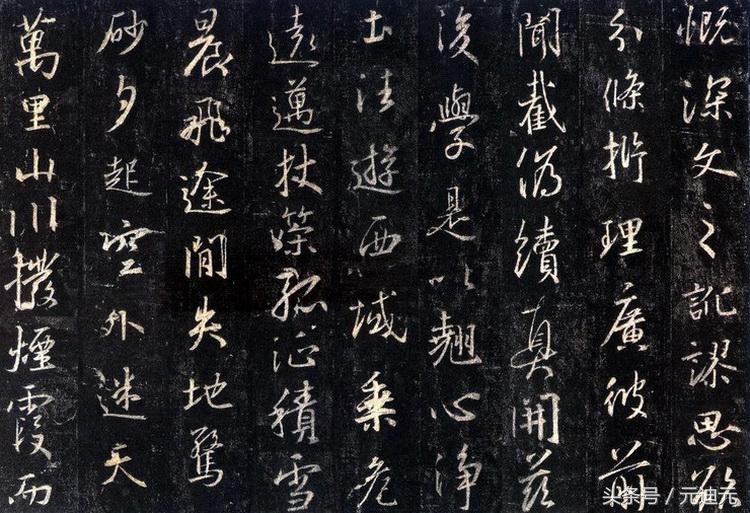 慨深文之訛謬思欲
分條析理廣彼前
聞截偽續真開茲
後學是以翹心淨
土法遊西域乘危
遠邁杖策孤征積雪
晨飛途間失地驚
砂夕起空外迷天
萬里山川撥煙霞而
头条号 / 元迪元